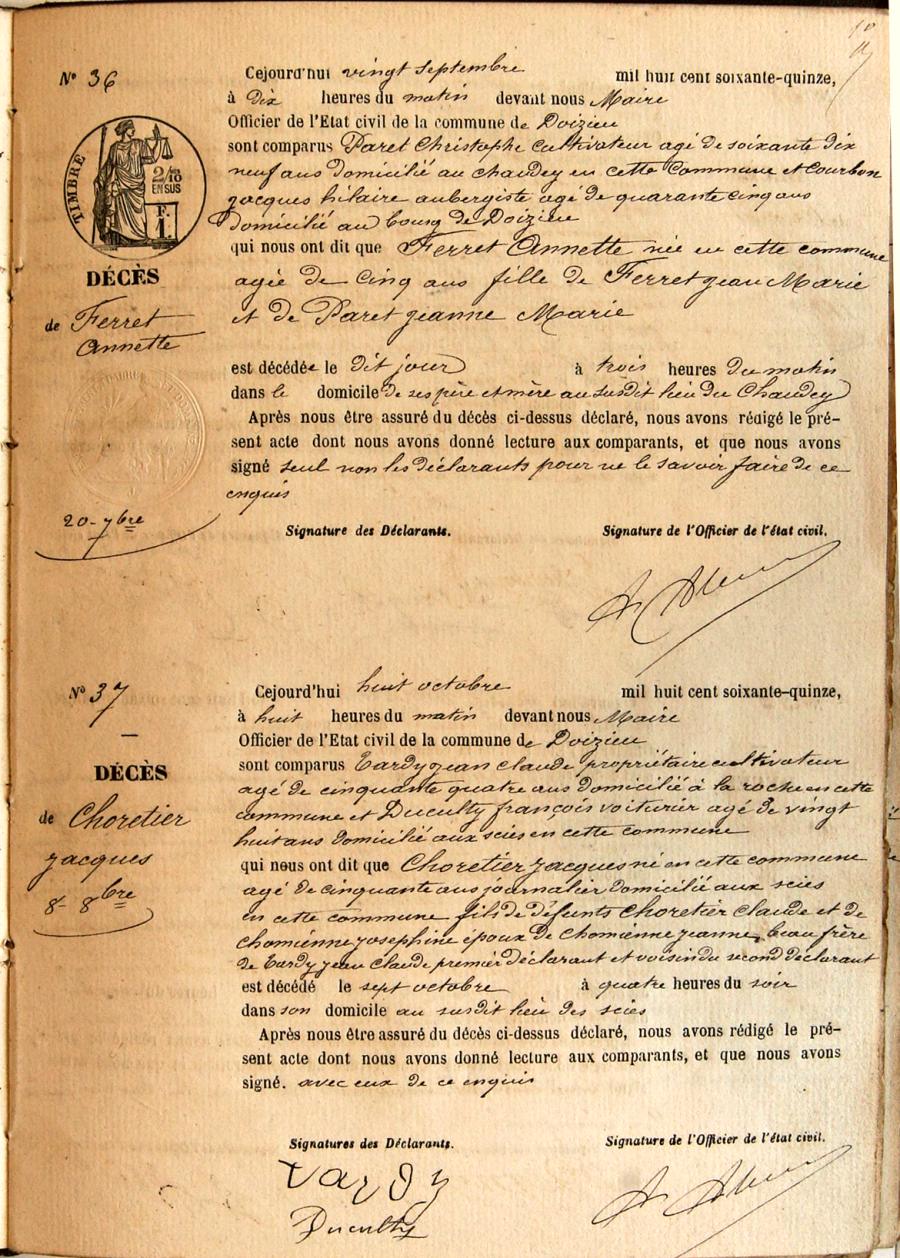 Nº 36
TIMBRE
2/10
EN SUS
F.
1.
DÉCÈS
de Ferret
Annette
20 - 7bre
Cejourd'hui vingt septembre mil huit cent soixante-quinze,
à dix heures du matin devant nous Maire
Officier de l'Etat civil de la commune de Doizieu
sont comparus Paret Christophe cultivateur agé de soixante dix
neuf ans domicilié au chaudey en cette Commune et Courbon
jacques hilaire aubergiste agé de quarante cinq ans
domicilié au bourg de Doizieu
qui nous ont dit que Ferret Annette née en cette commune
agée de cinq ans fille de Ferret jean Marie
et de Paret jeanne Marie
est décédée le dit jour à trois heures du matin
dans le domicile de ses père et mère au susdit lieu du Chaudey
Après nous être assuré du décès ci-dessus déclaré, nous avons rédigé le pré-
sent acte dont nous avons donné lecture aux comparants, et que nous avons
signé seul non les déclarants pour ne le savoir faire de ce
enquis
Signature des Déclarants. Signature de l'Officier de l'état civil.
Nº 37
DÉCÈS
de Choretier
jacques
8 - 8bre
Cejourd'hui huit octobre mil huit cent soixante-quinze,
à huit heures du matin devant nous Maire
Officier de l'Etat civil de la commune de Doizieu
sont comparus Tardy jean claude propriétaire cultivateur
agé de cinquante quatre ans domicilié à la roche en cette
commune et Duculty françois voiturier agé de vingt
huit ans domicilié aux scies en cette commune
qui nous ont dit que Choretier jacques né en cette commune
agé de cinquante ans journalier domicilié aux scies
en cette commune fils de défunts Choretier claude et de
chomienne josephine époux de Chomienne jeanne, beau frère
de Tardy jean claude premier déclarant et voisin du second déclarant
est décédé le sept octobre à quatre heures du soir
dans son domicile au susdit lieu des scies
Après nous être assuré du décès ci-dessus déclaré, nous avons rédigé le pré-
sent acte dont nous avons donné lecture aux comparants, et que nous avons
signé. avec eux de ce enquis
Signatures des Déclarants. Signature de l'Officier de l'état civil.
Tardy
Duculty